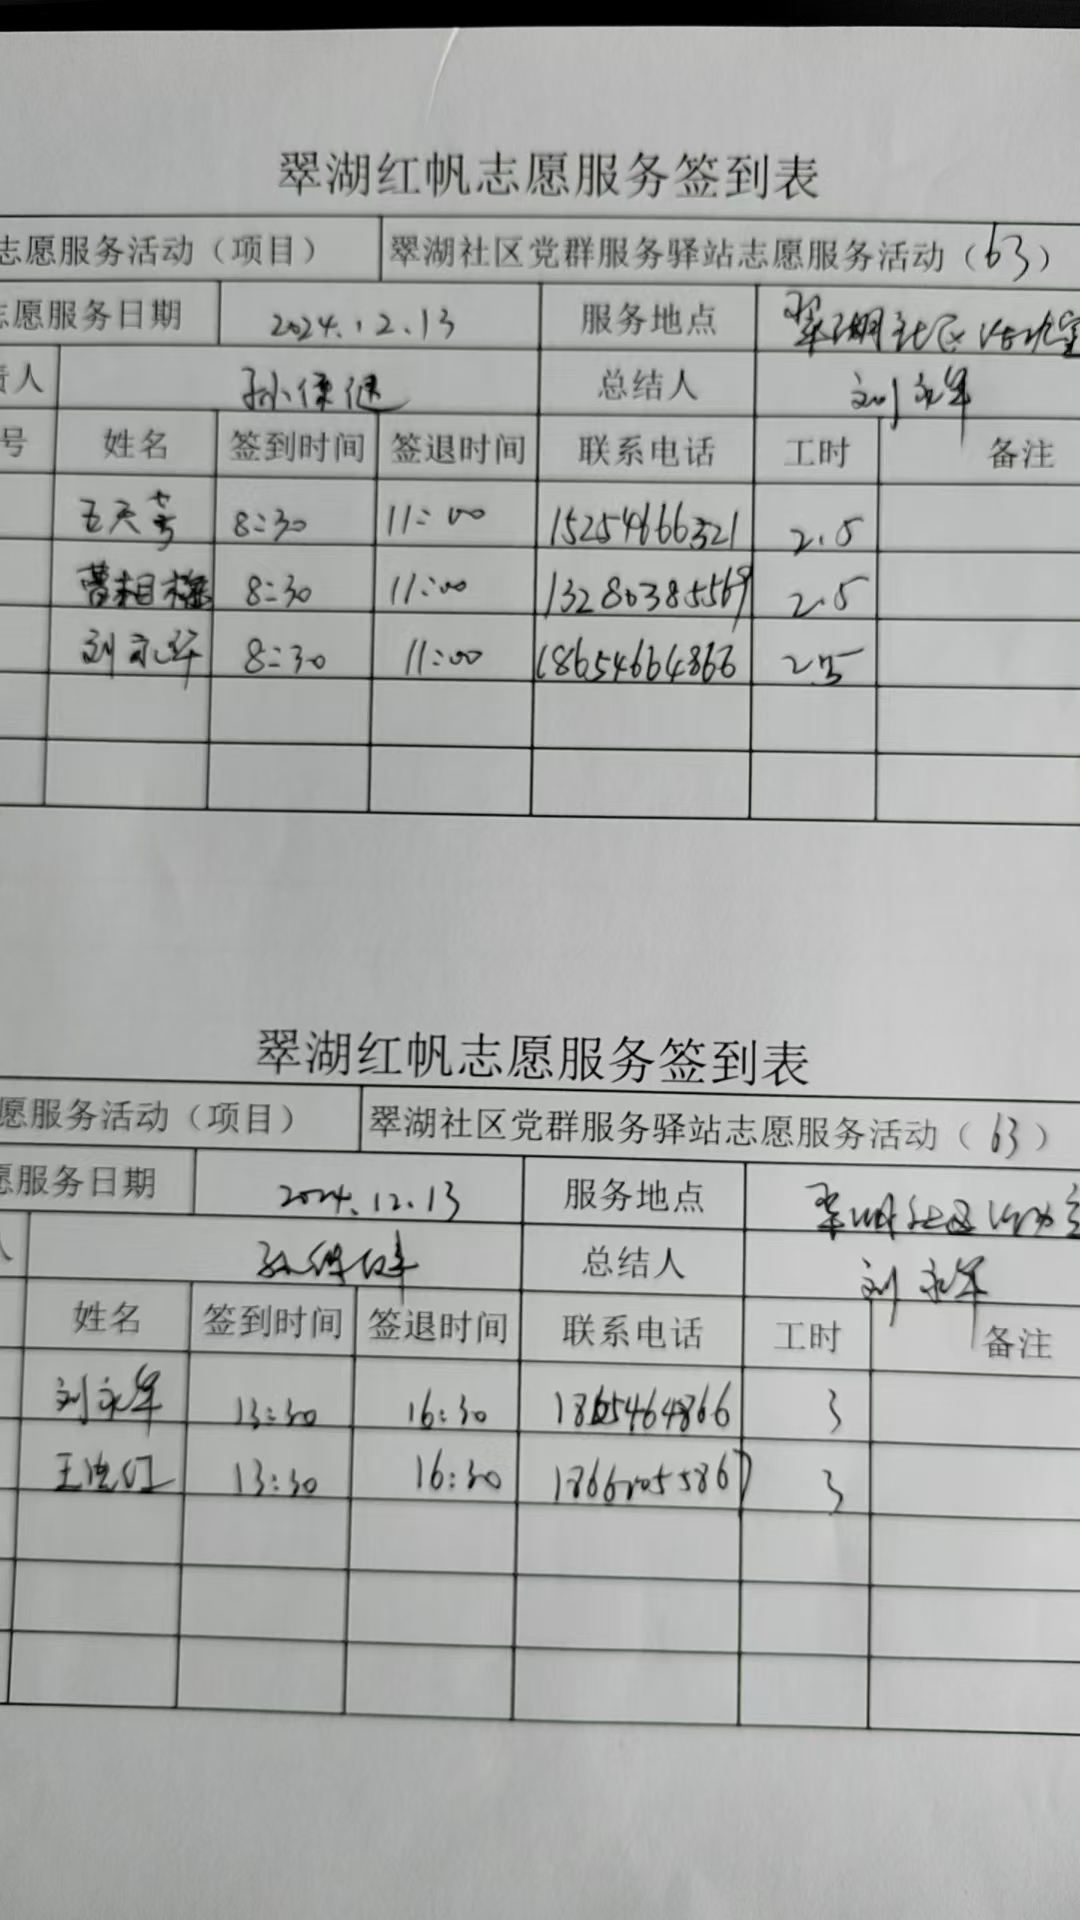 翠湖红帆志愿服务签到表
志愿服务活动（项目） 翠湖社区党群服务驿站志愿服务活动（63）
志愿服务日期 2024.12.13 服务地点 翠湖社区活动室
责人 孙保健 总结人 刘永军
号 姓名 签到时间 签退时间 联系电话 工时 备注
8:30 11:00 15254666321 2.5
曹相梅 8:30 11:00 13280385569 2.5
刘永军 8:30 11:00 18654664866 2.5
翠湖红帆志愿服务签到表
愿服务活动（项目） 翠湖社区党群服务驿站志愿服务活动（63）
愿服务日期 2024.12.13 服务地点 翠湖社区活动室
人 孙保健 总结人 刘永军
姓名 签到时间 签退时间 联系电话 工时 备注
刘永军 13:30 16:30 3
13:30 16:30 18662055867 3